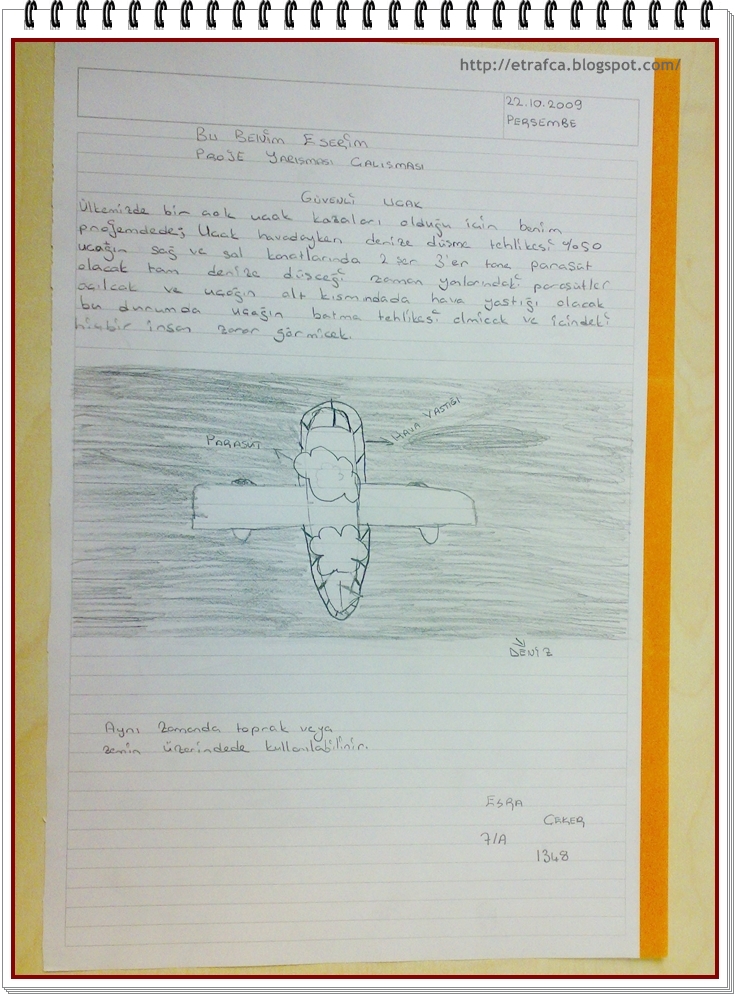 http://etrafca.blogspot.com/
22.10.2009
PERŞEMBE
BU BENİM ESERİM
PROJE YARIŞMASI ÇALIŞMASI
GÜVENLİ UÇAK
Ülkemizde bir çok uçak kazaları olduğu için benim
projemdede; Uçak havadayken denize düşme tehlikesi %50
uçağın sağ ve sol kanatlarında 2 şer 3'er tane paraşüt
olacak tam denize düşceği zaman yanlarındaki paraşütler
açılcak ve uçağın alt kısmındada hava yastığı olacak
bu durumda uçağın batma tehlikesi olmicek ve içindeki
hiçbir insan zarar görmicek.
PARAŞÜT
HAVA YASTIĞI
DENİZ
Aynı zamanda toprak veya
zemin üzerindede kullanılabilinir.
ESRA
ÇEKER
7/A
1348